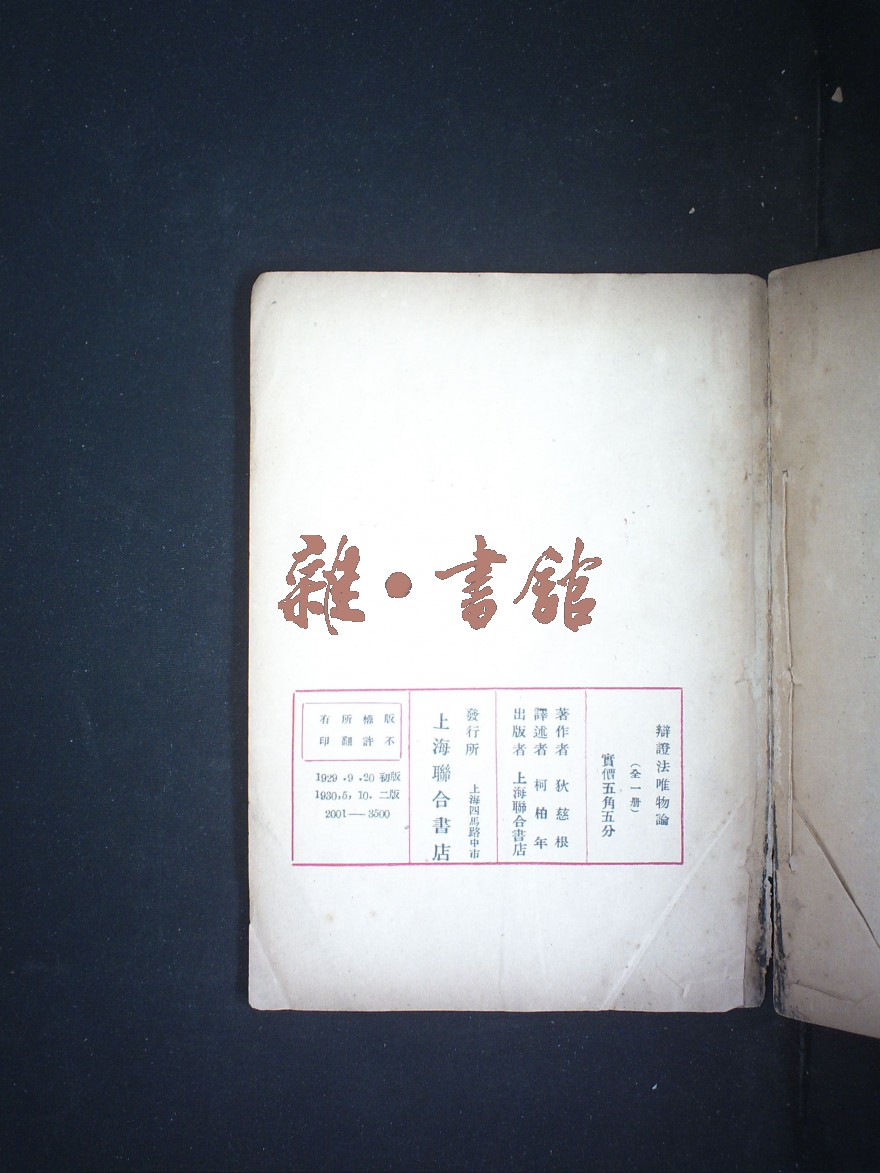 雜•書館
辯證法唯物論
(全一册)
實價五角五分
著作者 狄慈根
譯述者 柯柏年
出版者 上海聯合書店
發行所 上海四馬路中市
上海聯合書店
版權所有
不許翻印
1929.9.20 初版
1930,5,10.二版
2001——3500